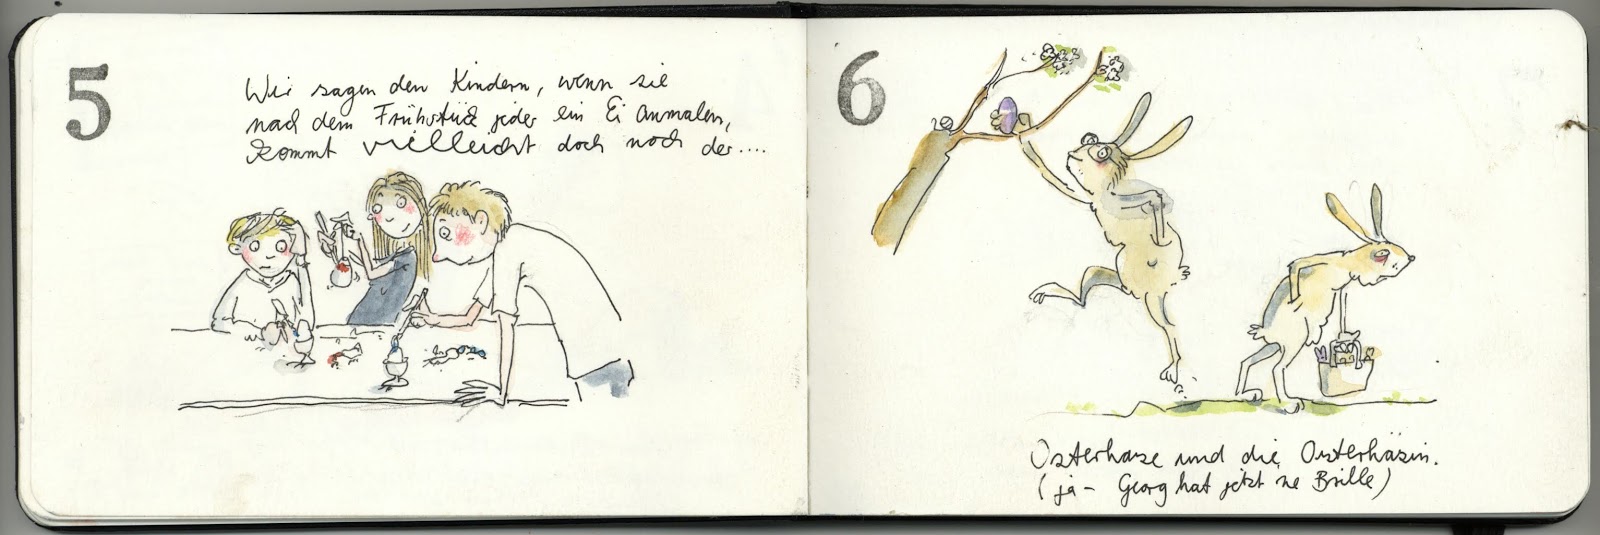 5
Wir sagen den Kindern, wenn sie
nach dem Frühstück jeder ein Ei anmalen,
kommt vielleicht doch noch der....
6
Osterhase und die Osterhäsin.
(ja - Georg hat jetzt ne Brille)